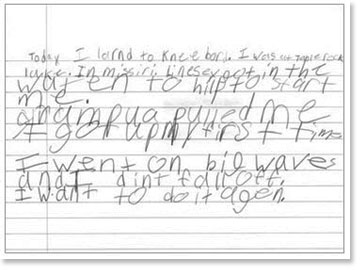 Today I larnd to Kneebord. I was at Table rock
lake. In missiri. Linesey got in the
waden to hilp to start
me.
grampua pulled me
I got up my first time
I went on big waves
and I dint fall off.
I want to do it agen.